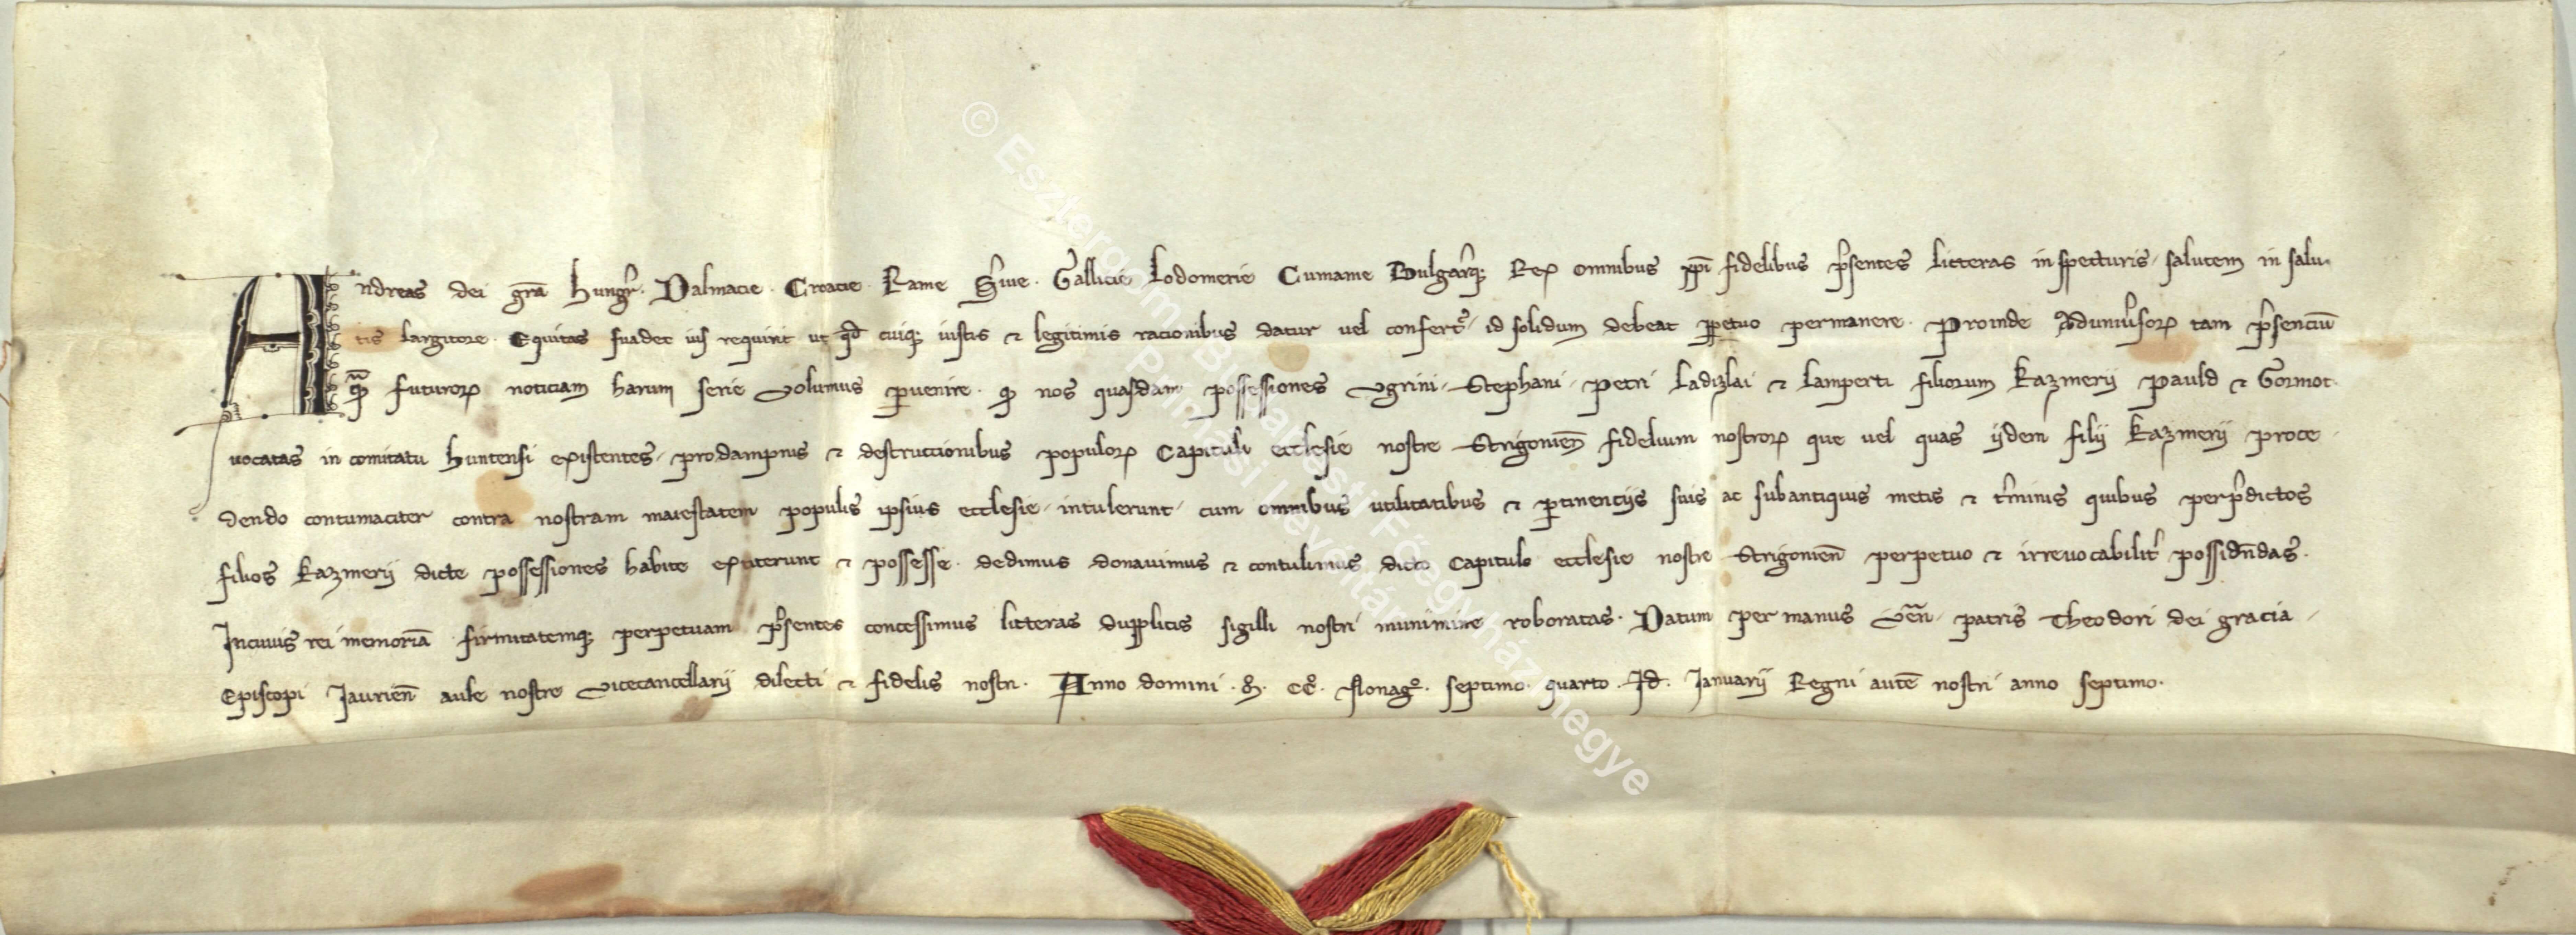 Andreas dei gr̄a Hungͬ. Dalmacie. Croacie. Rame Sͥuie. Gallicie Lodomerie Cumanie Bulgarͥq; Rex omnibus xp̄i fidelibus p̓sentes litteras inspecturis, salutem in salu-
tis largitore. Equitas suadet ius requirit ut qd̄ cuiq; iustis ⁊ legitimis racionibus datur vel confert᷒, id solidum debeat ꝑpetuo permanere. Proinde Aduniu̓soꝝ tam p̓senciū
qᷓm futuroꝝ noticiam harum serie Volumus ꝑuenire. ꝙ nos quasdam possessiones Vgrini, Stephani, Petri Ladizlai ⁊ Lamperti filiorum Kazmerij Pauld ⁊ Gormot.
uocatas in comitatu Huntensi existentes, prodampnis ⁊ destruccionibus populoꝝ Capituli ecclesie nostre Strigonien̄ fidelium nostroꝝ que vel quas ijdem filij Kazmerij proce-
dendo contumaciter contra nostram maiestatem populis ipsius ecclesie, intulerunt, cum omnibus utilitatibus ⁊ ꝑtinencijs suis ac subantiquis metis ⁊ t̓minis quibus perp̓dictos
filios Kazmerij dicte possessiones habite extiterunt ⁊ possesse. dedimus donauimus ⁊ contulimus dicto Capitulo ecclesie nostre Strigonien̄ perpetuo ⁊ irreuocabilit̓ possidn̄das.
Incuius rei memoriā firmitatemq; perpetuam p̓sentes concessimus litteras dupplicis sigilli nostri munimine roboratas. Datum per manus Ven̄. patris Theodori dei gracia
Episcopi Jaurien̄ aule nostre Vicecancellarij dilecti ⁊ fidelis nostri. Anno domini. M. CCͦ. Nonagͦ. septimo. quarto. Jd̄. Januarij Regni autē nostri anno septimo.
© Esztergom-Budapesti Főegyházmegye
Prímási Levéltár